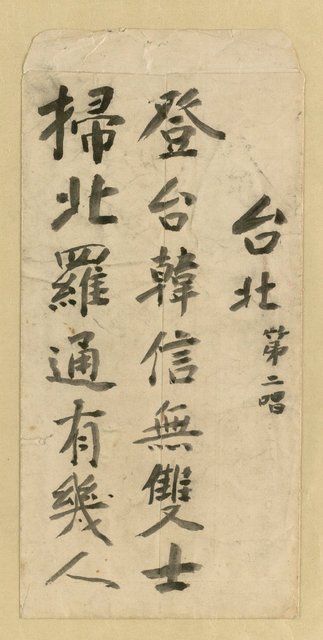 台北 第二唱
登台韓信無雙士
掃北羅通有幾人